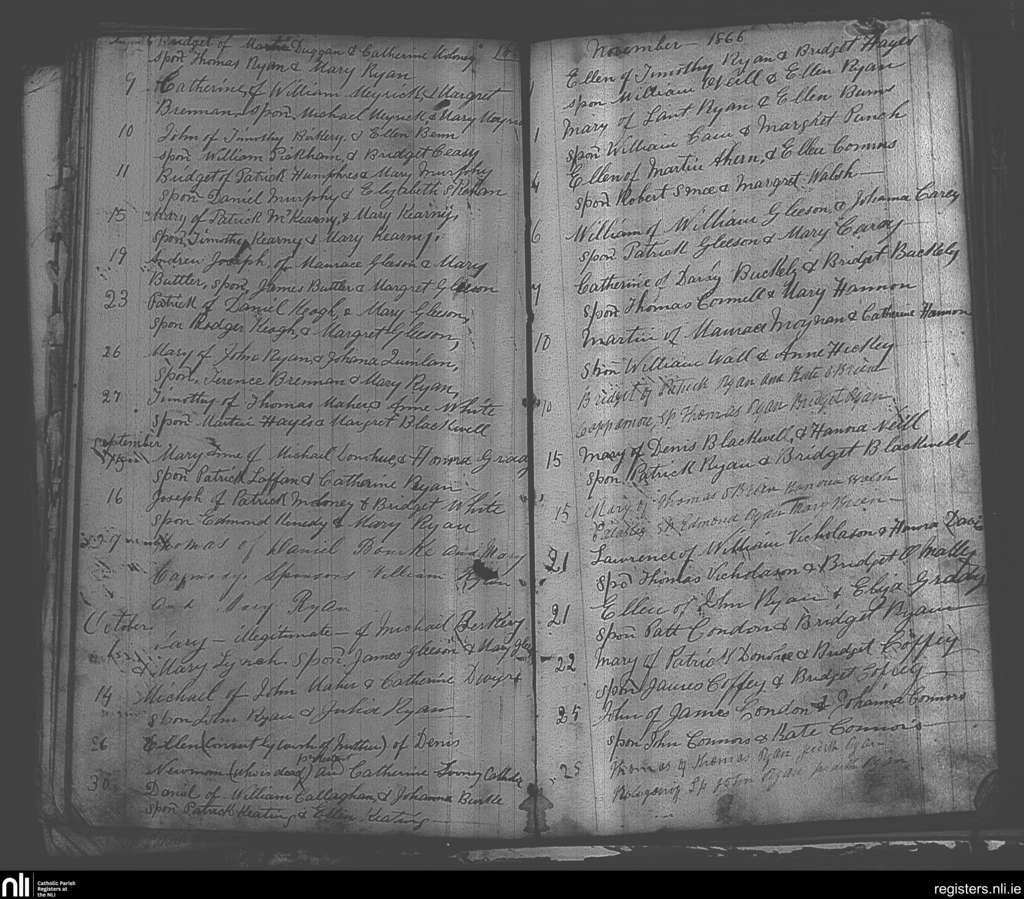 August 6 Bridget of Martin Duggan & Catherine
Spon Thomas Ryan & Mary Ryan
9 Catherine, of William Meyrick, & Margret
Brennan, spon, Michael Meyrick & Mary Meyrick
10 John of Timothy Berkery, & Ellen Benn
spon William & Bridget Ceasy
11 Bridget of Patrick Humphres & Mary Murphy
Spon Daniel Murphy & Elyzabeth
15 Mary of Patrick McKearny, & Mary Kearny,
Spon, Timothy Kearny & Mary Kearny,
19 Andrew Joseph, of Maurace Gleason & Mary
Buttler, spon, James Buttler & Margret Gleeson
23 Patrick of Daniel Keogh, & Mary Gleeson,
spon Rodger Keogh, & Margret Gleeson,
26 Mary of John Ryan & Johana Quinlan,
Spon, Terence Brennan & Mary Ryan,
27 Timothy of Thomas Maher & Anne White
Spon Martin Hayes & Margret Blackwell
September
Mary Anne of Michael Donohue, & Honora Grady
Spon Patrick Laffan & Catherine Ryan
16 Joseph of Patrick Moloney & Bridget White
Spon Edmond Kenedy & Mary Ryan
27 Thomas of Daniel Bourke and Mary
Sponsors William Ryan
and Mary Ryan
October
Mary - illegitimate - of Michael Berkery
& Mary Lynch. Spon, James Gleeson & Mary
14 Michael of John Maher & Catherine Dwyer
Spon John Ryan & Julia Ryan
26 Ellen (convert by wish of Mother) of Denis
Protestant
Newman (who is dead) and Catherine Looney Catholic
30 Daniel of William Callaghan, & Johanna Burke
Spon Patrick Keating & Ellen Keating
November - 1866
1 Ellen of Timothy Ryan & Bridget Hayes
spon William O'Neill & Ellen Ryan
1 Mary of Lant Ryan & Ellen Burns
Spon William & Margret Punch
4 Ellen of Martin Ahern, & Ellen Connors
Spon Robert & Margret Walsh
6 William of William Gleeson, & Johanna Carey
Spon Patrick Gleeson & Mary Carey
7 Catherine of Darby Buckely & Bridget Buckely
Spon Thomas Connell & Mary Hannon
10 Martin of Maurace Moynan & Catherine Hannon
Spon William Wall & Anne Hickey
10 Bridget of Patrick Ryan and Kate O Brien
Cappamore, Sp Thomas Ryan Bridget Ryan
15 Mary of Denis Blackwell, & Hanora Neill
Spon Patrick Ryan & Bridget Blackwell
15 Mary of Thomas O Brien Hanora Walsh
Sp Edmond Ryan Mary
21 Lawrence of William Nicholason & Honora
Spon Thomas Nicholason & Bridget O Mally
21 Ellen of John Ryan & Eliza Grady
Spon Patt Condon & Bridget Ryan
22 Mary of Patrick Donohoe & Bridget Coffey
Spon James Coffey & Bridget Coffey
25 John of James Condon & Johanna Connors
spon John Connors & Kate Connors
25 Thomas of Thomas Ryan Judith Ryan
Sp John Ryan Ryan
nli
Catholic Parish
Registers at
the NLI
registers.nli.ie